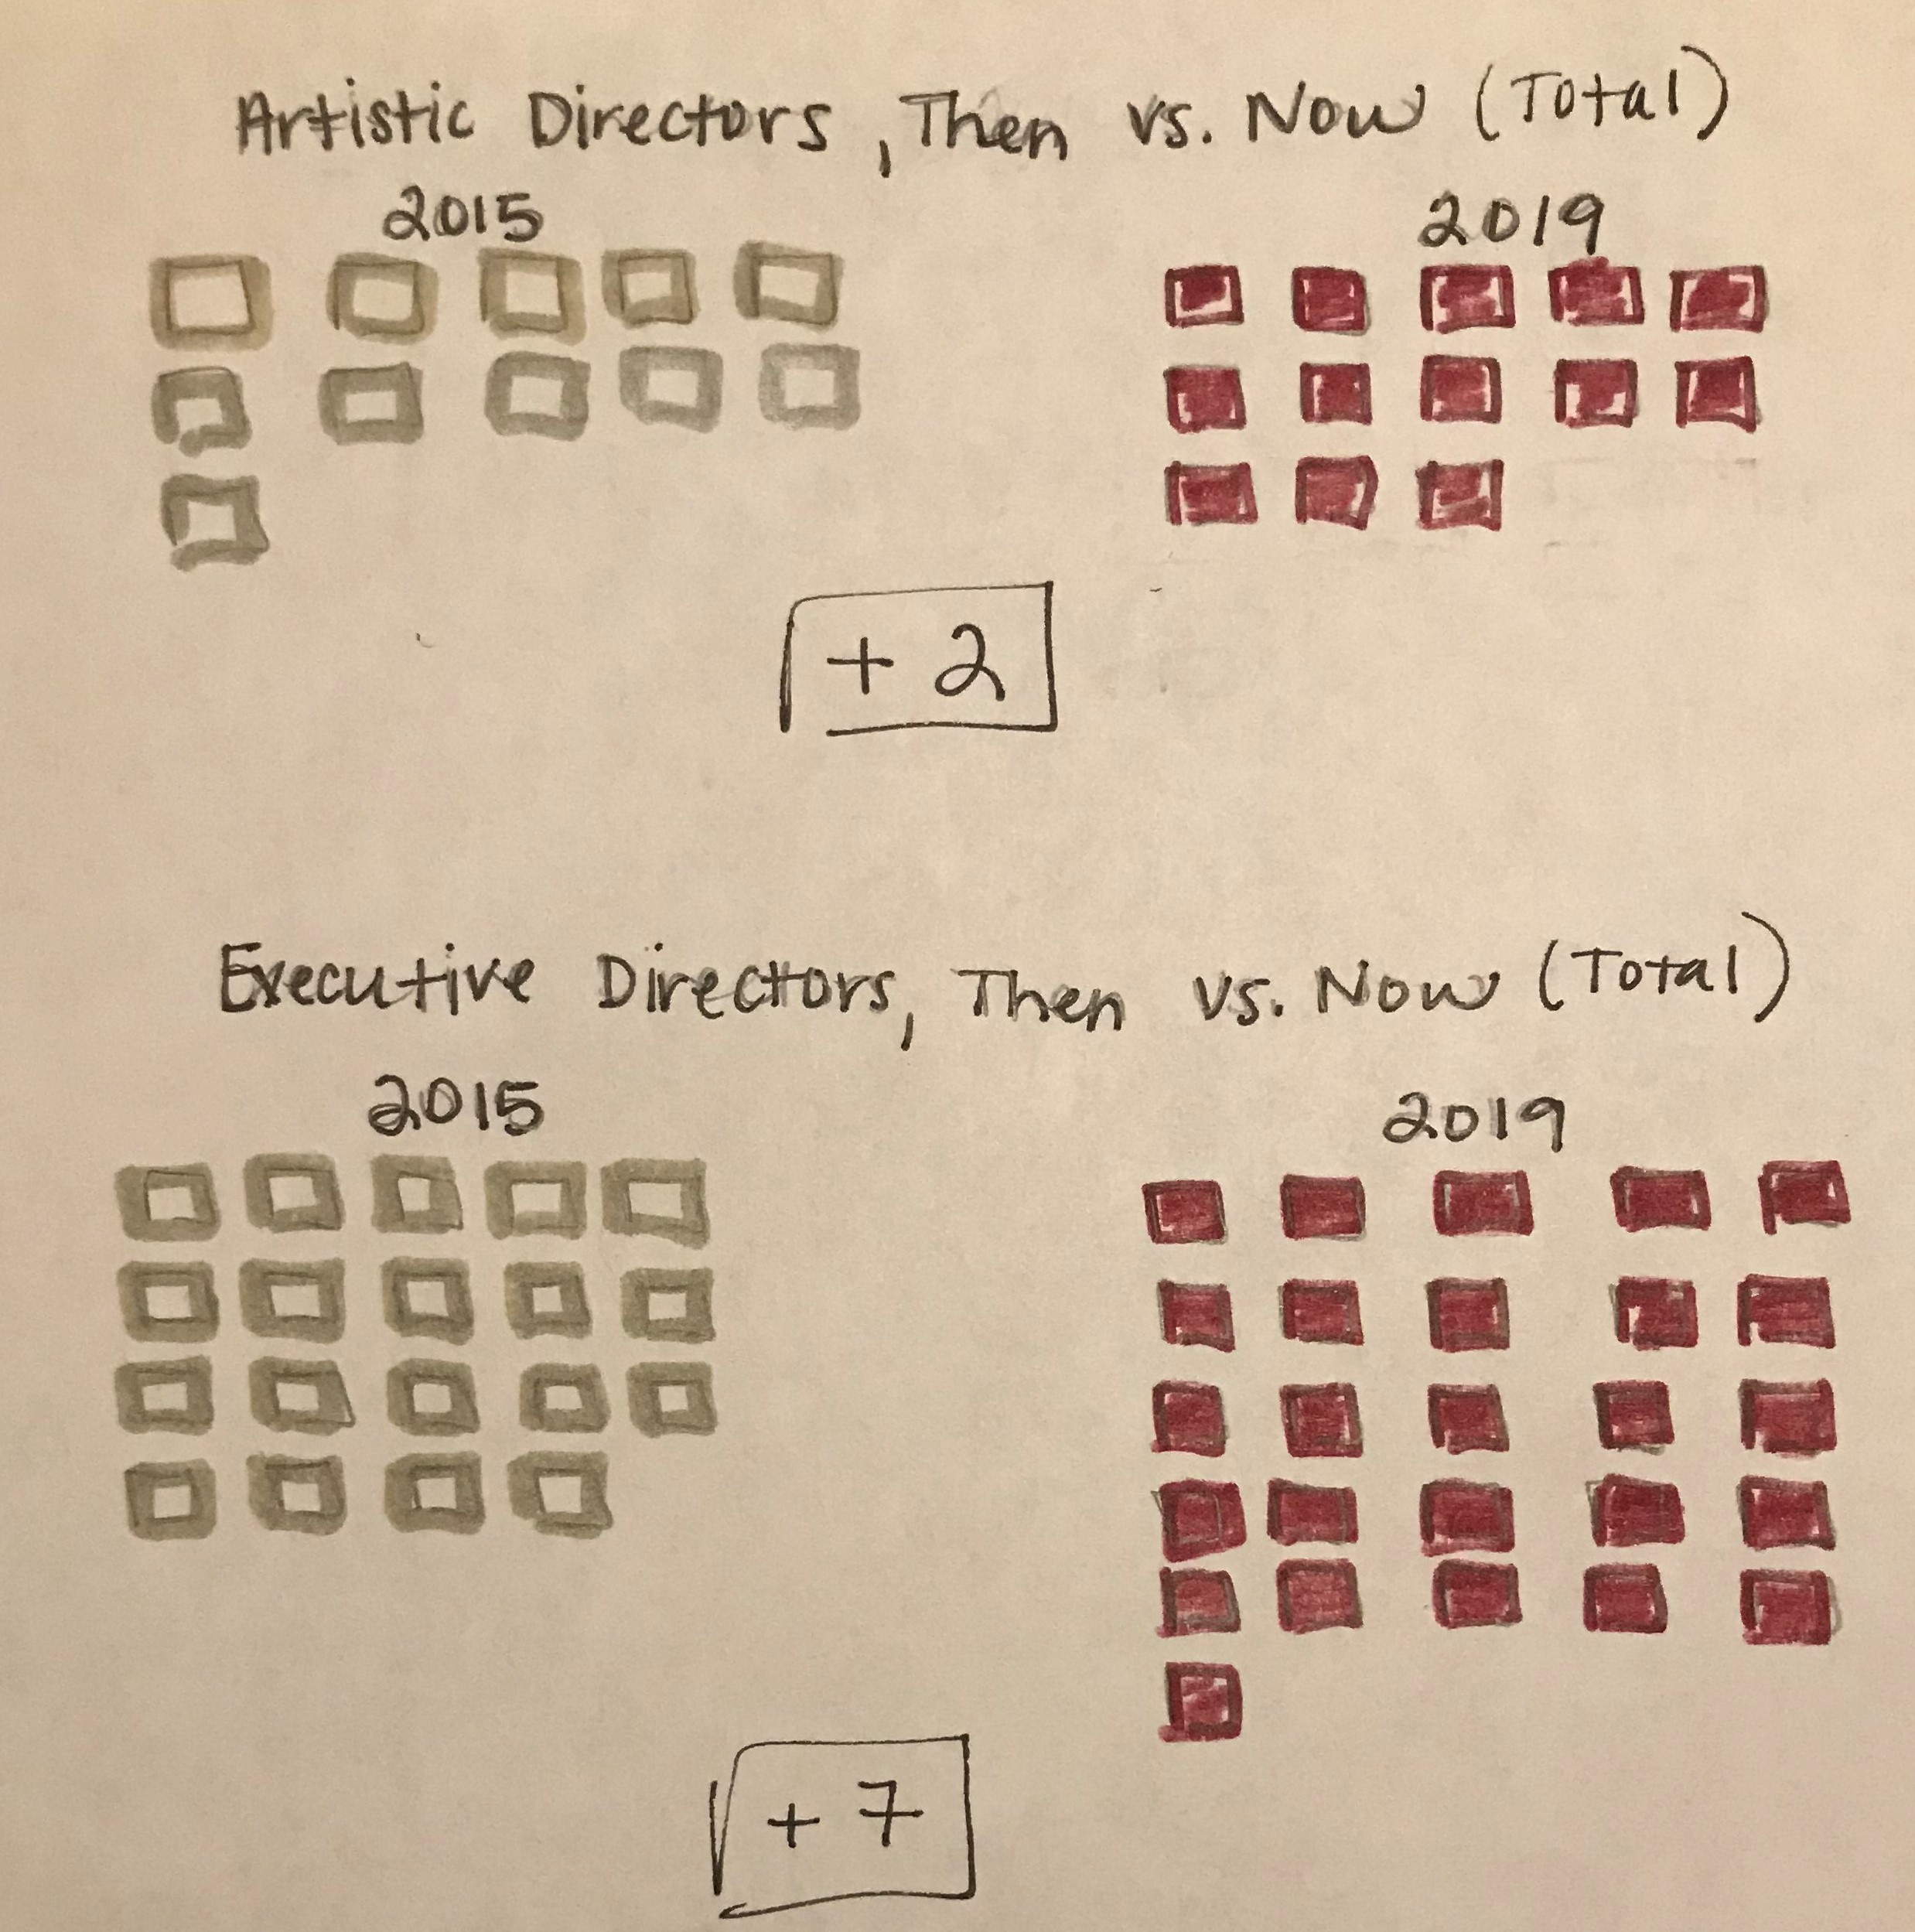 Artistic Directors, Then vs. Now (Total)
2015 2019
+ 2
Executive Directors, Then vs. Now (Total)
2015 2019
+ 7